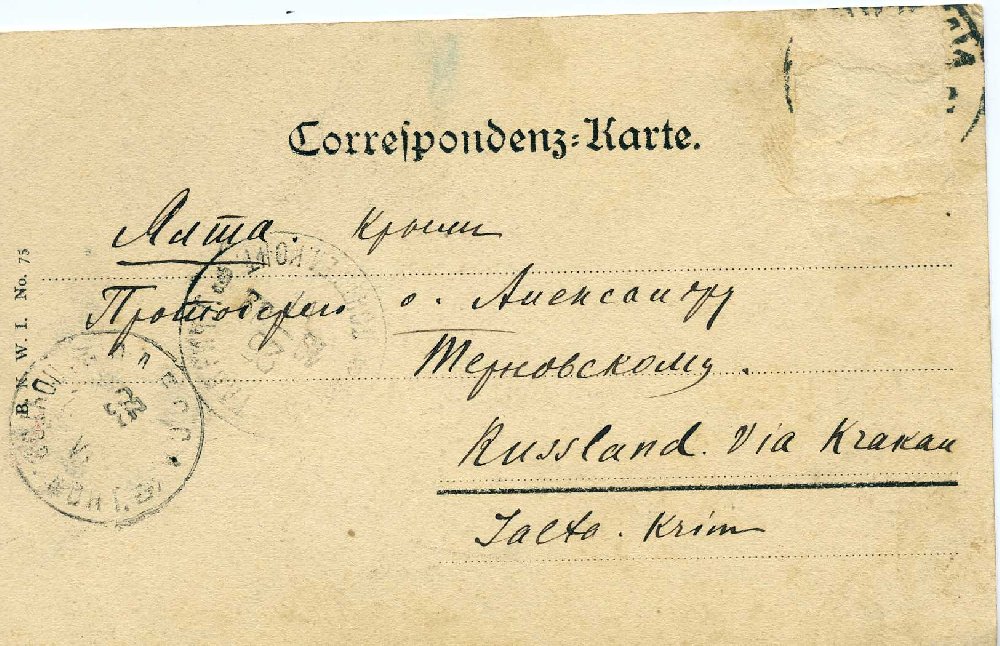 Correspondenz-Karte.
Ялта. Крым
Протоиерею о. Александру
Терновскому.
Russland. Via Krakau
Jalta. Krim
B. K. W. I. No. 75